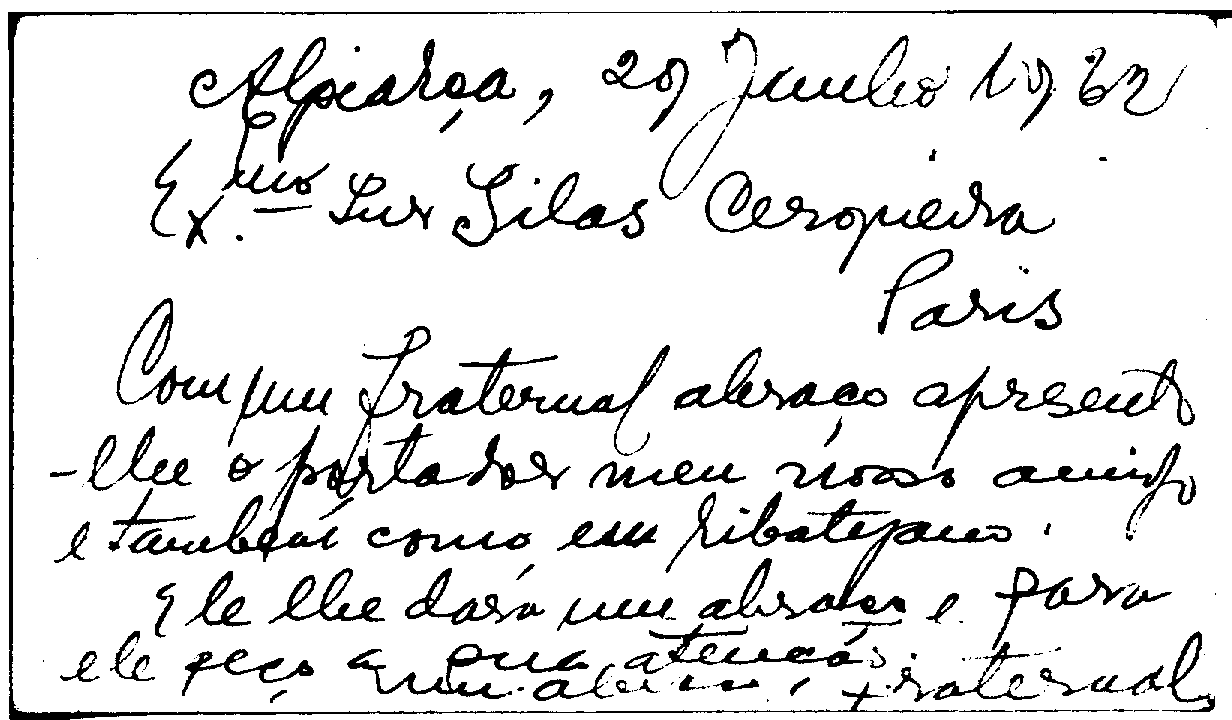 Alpiarça, 29 Junho 1962
Ex.mo Snr Silas Cerqueira
Paris
Com um fraternal abraço apresento
-lhe o portador meu nosso amigo
e também como eu ribatejano.
Ele lhe dará um abraço e para
ele peço a sua atenção.
Um abraço, fraternal